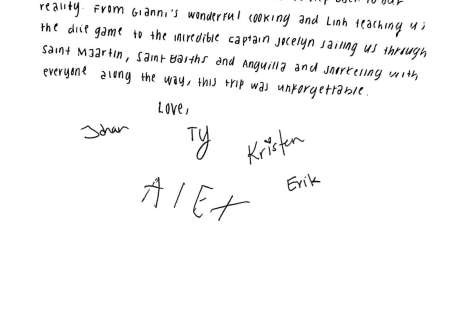 reality. From Gianni's wonderful cooking and Linh teaching us
the dice game to the incredible captain Jocelyn sailing us through
Saint Martin, Saint Barths and Anguilla and snorkeling with
everyone along the way, this trip was unforgettable.
Love,
Johan TY Kristen
Alex Erik